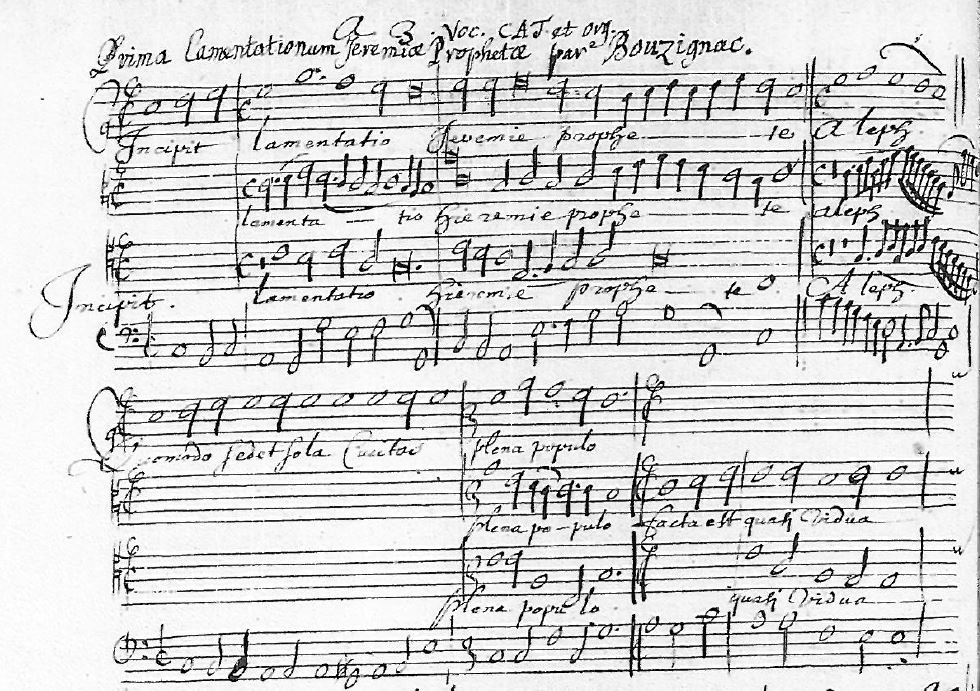 a 3. Voc. CAT. et org.
Prima Lamentationum Jeremiæ Prophetæ par Bouzignac.
Incipit lamentatio Jeremie prophe te Aleph
lamenta tio hieremie prophe te aleph
Incipit. lamentatio hieremie prophe te Aleph.
Quomodo sedet sola Civitas plena populo
plena po-pulo facta est quasi vidua
plena populo quasi vidua